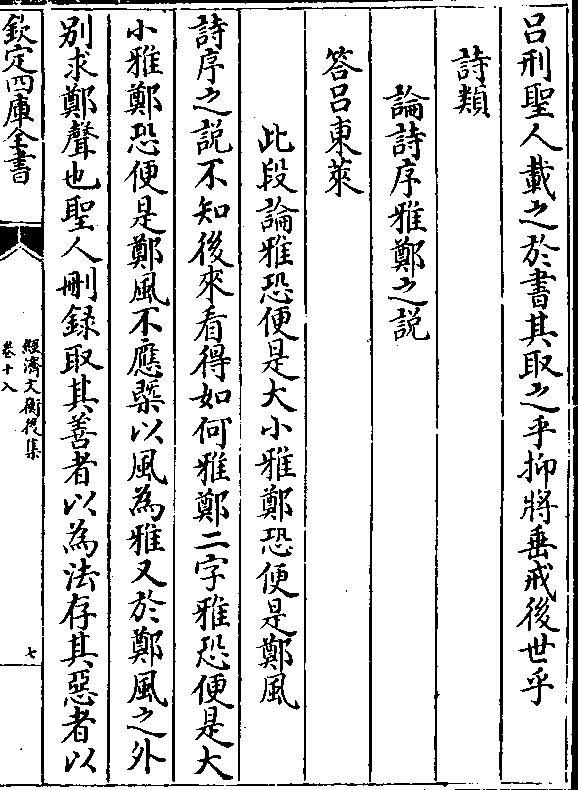 呂刑聖人載之於書其取之乎抑將垂戒後世乎
詩類
論詩序雅鄭之説
答呂東萊
此段論雅恐便是大小雅鄭恐便是鄭風
詩序之説不知後來看得如何雅鄭二字雅恐便是大
小雅鄭恐便是鄭風不應槩以風為雅又於鄭風之外
别求鄭聲也聖人刪録取其善者以為法存其惡者以
欽定四庫全書
經濟文衡後集
卷十八
七